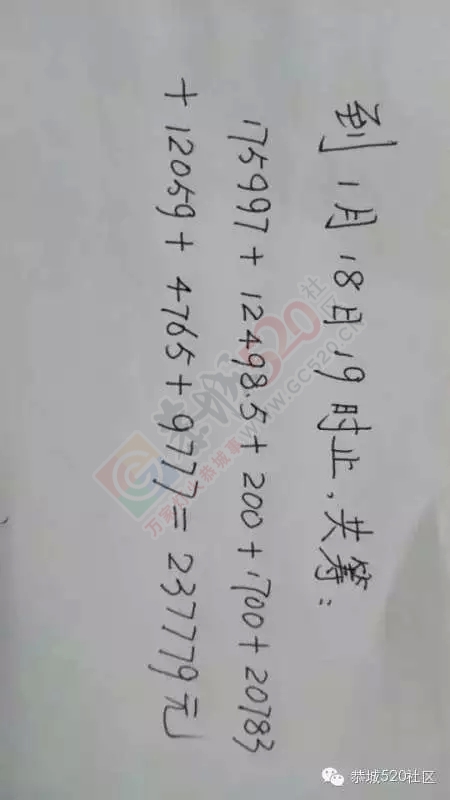 到1月18日19时止,共筹:
175997+12498.5+200+1700+20783
+12059+4765+9777=237779元
恭城520社区
万家灯火恭城事WWW.GC520.CN
恭城520社区